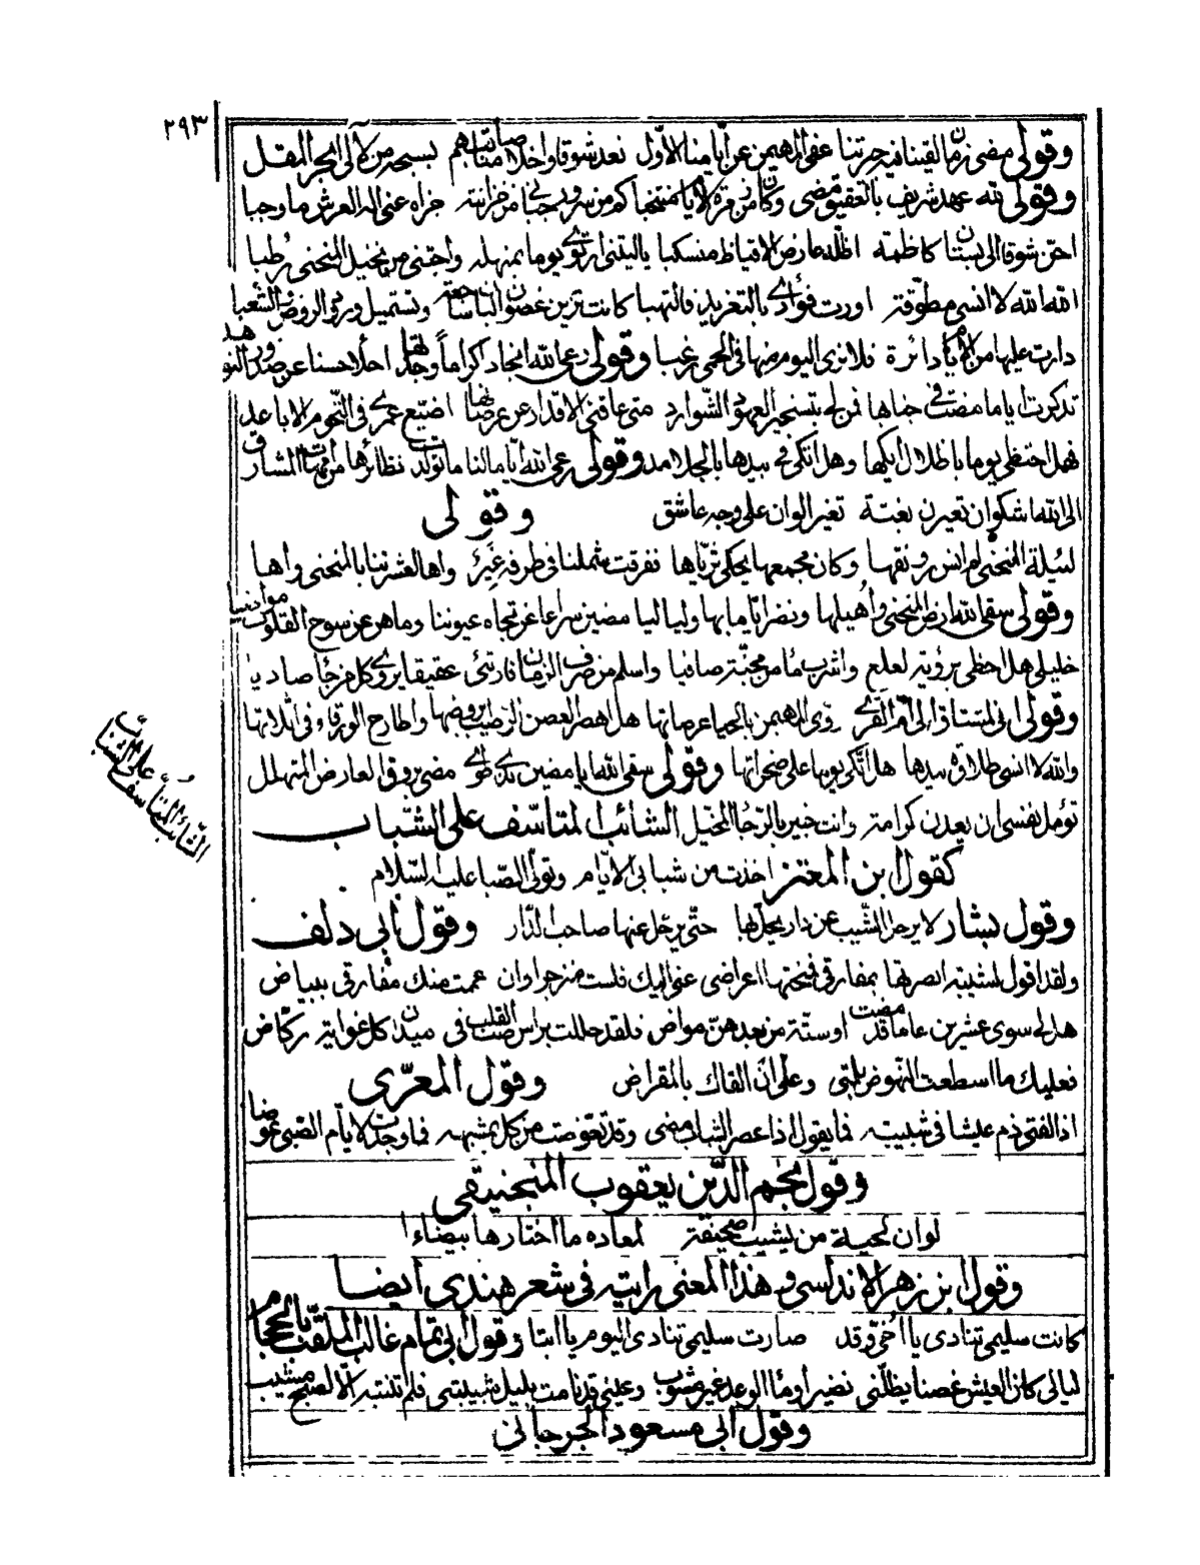 ٢٩٣
وقولي مضى زمان لقينا فيه جرتنا عفى المهيمن عن أيامنا الأول نعد شوقا واخلاصا مناقبهم بسبحة من لآلى البحر المقل
وقولي لله عهد شريف بالعقيق مضى وكان من قرة الايام منتخبا كم من سرور جبانى من خزانته جزاه عنى اله العرش ما وجبا
احن شوقا الى بستان كاظمة اظله عارض الاقياظ منسكبا ياليتنى ارتوى يوما بمنهله واجتنى من نخيل المنحنى رطبا
الله الله لا انسى مطوقة اورت فؤادى بالتغريد فالتهبا كانت تزين غصون البان ساحته وتستميل ورق الروض الشعبا
دارت عليها من الايام دائرة فلا نرى اليوم منها فى الحمى زغبا وقولي رعى الله انجادا كراما وجدتها احلا حسنا عن صدور النواهد
تذكرت اياما مضت فى جنابها فمن لى بتسخير العهود الشوارد متى عاقنى الاقدار عن عرصاتها اضيع عمرى فى التخوم الاباعد
فهل احتظى يوما باظلال ايكها وهل اتكى فى بيدها بالجلامد وقولي رعى الله اياما لنا ما تولدت نظائرها من امهات المشارق
الى الله اشكو ان تعيرن بغتة تغير الوان على وجه عاشق وقولى
لييلة المنحنى لم انس رونقها وكان مجمعها يحكى ثرياها تفرقت شملنا فى طرفة غير واها لعشرتنا بالمنحنى واها
وقولي سقى الله ارض المنحنى واهيلها ونضر اياما بها ولياليا مضين سراعا عن تجاه عيوننا وما هن عن سوح القلوب مواضيا
خليلى هل احظى برؤية لعلع واشرب ماء من مجنة صافيا واسلم من صرف الزمان فارتئى عقيقا يروى كل من جاء صاديا
وقولي انى لمشتاق الى ام القرى روى المهيمن بالحيا عرصاتها هل اهصر الغصن الرطيب بروضها واطارح الورقاء فى اثلاتها
والله لا انسى طلاقة بيدها هل اتكى يوما على صخراتها وقولي سقى الله اياما مضين بذى طوى مضى بروق العارض المتهلل
تؤمل نفسى ان يعدن كرامة وانت خبير بالرجاء المخيل الشائب المتأسف على الشباب
الشائب المتأسف على الشباب
كقول ابن المعتز اخذت من شبابى الأيام وتولى الصبا عليه السلام
وقول بشار لا يرحل الشيب عن دار يحل بها حتى يرحل عنها صاحب الدار وقول أبى دلف
ولقد اقول لشيبة ابصرتها بمفارقى فمنحتها اعراضى عنى اليك فلست منزجرا وان عممت منك مفارقى ببياض
هل لى سوى عشرين عاما قد مضت او ستة من بعدهن مواض فلقد حللت براس صب القلب فى ميدان كل غواية ركاض
فعليك ما اسطعت النهوض بلمتى وعلى ان القاك بالمقراض وقول المعرى
اذا الفتى ذم عيشا فى شبيبته فما يقول اذا عصر الشباب مضى وقد تعوضت من كل بمشبهه فما وجدت لايام الصبى عوضا
وقول نجم الدين يعقوب المنجنيقى
لو ان لحية من يشيب صحيفة لمعاده ما اختارها بيضاءا
وقول ابن زهر الاندلسى وهذا المعنى رايته فى شعر هندى ايضا
كانت سليمى تنادى يا اخى وقد صارت سليمى تنادى اليوم يا ابتا وقول ابى تمام غالب الملقب بالحجام
ليالى كان العيش غصنا يظلنى نضيرا وماء الوعد غير مشوب وعينى قد نامت بليل شبيبتى فلم تنتبه الا لصبح مشيب
وقول ابى مسعود الجرجانى